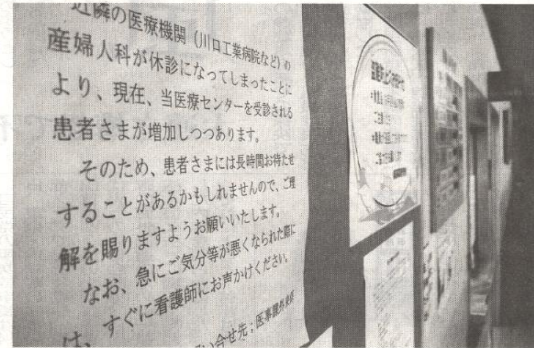 近隣の医療機関（川口工業病院など）の
産婦人科が休診になってしまったことに
より、現在、当医療センターを受診される
患者さまが増加しつつあります。
そのため、患者さまには長時間お待たせ
することがあるかもしれませんので、ご理
解を賜りますようお願いいたします。
なお、急にご気分等が悪くなられた際に
は、すぐに看護師にお声かけください。
い合せ先：医事課